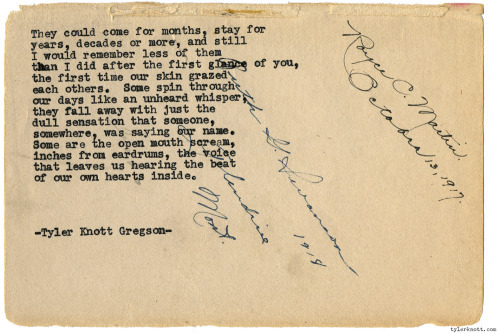 They could come for months, stay for
years, decades or more, and still
I would remember less of them
than I did after the first glance of you,
the first time our skin grazed
each others.  Some spin through
our days like an unheard whisper,
they fall away with just the
dull sensation that someone,
somewhere, was saying our name.
Some are the open mouth scream,
inches from eardrums, the voice
that leaves us hearing the beat
of our own hearts inside.
-Tyler Knott Gregson-
C. Martin
October 13, 1917.
Swanson
1918
Mont.
tylerknott.com